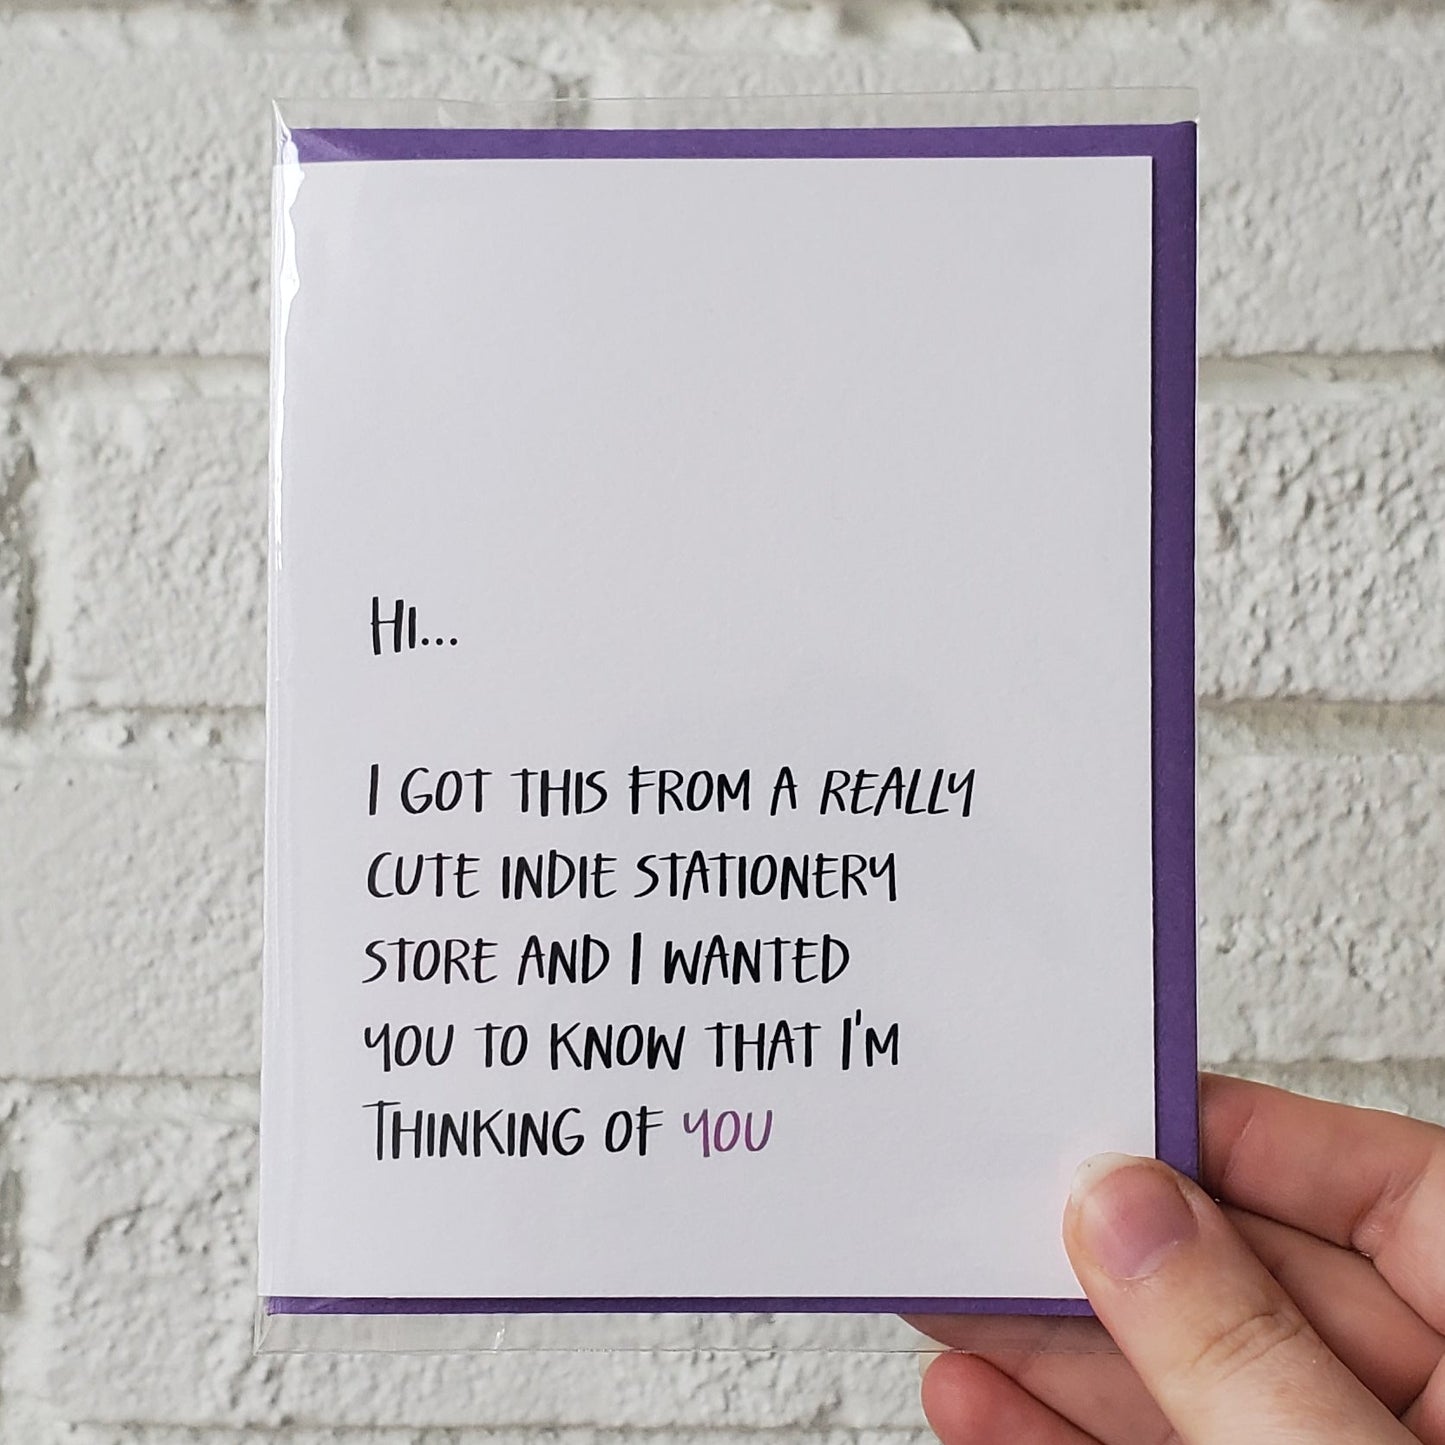 HI...
I GOT THIS FROM A REALLY
CUTE INDIE STATIONERY
STORE AND I WANTED
YOU TO KNOW THAT I'M
THINKING OF YOU